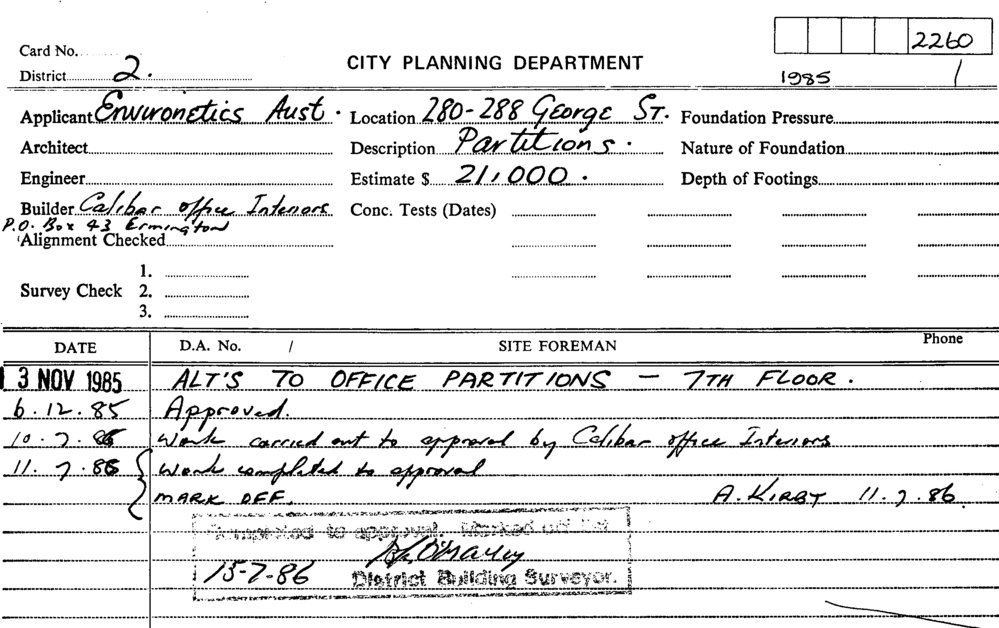 Card No.
2260
District 2.
CITY PLANNING DEPARTMENT
1985 /
Applicant Environetics Aust.
Location 280-288 George St.
Foundation Pressure
Architect
Description Partitions.
Nature of Foundation
Engineer
Estimate $ 21,000.
Depth of Footings
Builder Calibar office Interiors
Conc. Tests (Dates)
P.O. Box 43 Ermington
Alignment Checked
Survey Check
1.
2.
3.
DATE D.A. No. / SITE FOREMAN Phone
3 NOV 1985 ALT'S TO OFFICE PARTITIONS — 7TH FLOOR.
6.12.85 Approved.
10.7.86 Work carried out to approval by Calibar office Interiors
11.7.86 Work completed to approval
MARK OFF. A. KIRBY 11.7.86.
Completed to approval. Marked off
15-7-86 District Building Surveyor.